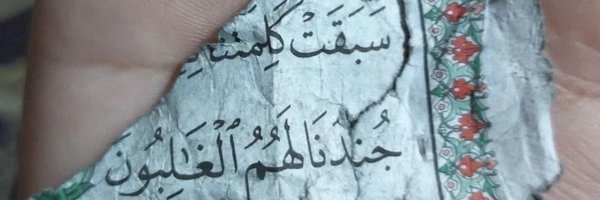 سَبَقَتْ كَلِمَتُنَا
جُندَنَا لَهُمُ ٱلْغَٰلِبُونَ